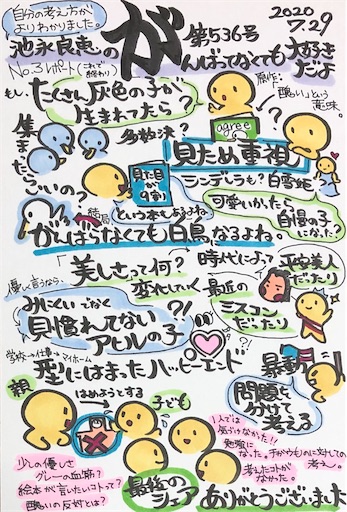 自分の考え方が
よりわかりました。
2020
7.29
池永良恵の
が
第536号
んばってなくても大好き
だよ
No.3レポート(これで
終わり)
原作:
「醜い」という
意味。
もし、
たくさん灰色の子が
生まれてたら?
集まったら
すごいのつ?
多数決?
agree
見ため重視
見た目
が
9割
という本もあるよね。
シンデレラも?白雪姫?
可愛いかったら
自慢の子
になった?
結局
がんばらなくても白鳥なるよね。
「美しさって何?
時代によって
変われていく
平安美人
だったり
最近の
ミスコン
だったり
優しく言うなら、
みにくいでなく
見慣れてない
アヒルの子
?!
学校→仕事→マイホーム
型にはまったハッピーエンド
暴動
?!
親
はめようとする
子ども
問題を
分けて
考える
1人では
気づけなかった!!
勉強に
なった。チガウモノに対しての
考え。
考えたコトが
なかった。
少しの優しさ
グレーの血筋?
絵本が言いたいコトって?
醜いの反対とは?
最後の
シェア
ありがとうございました